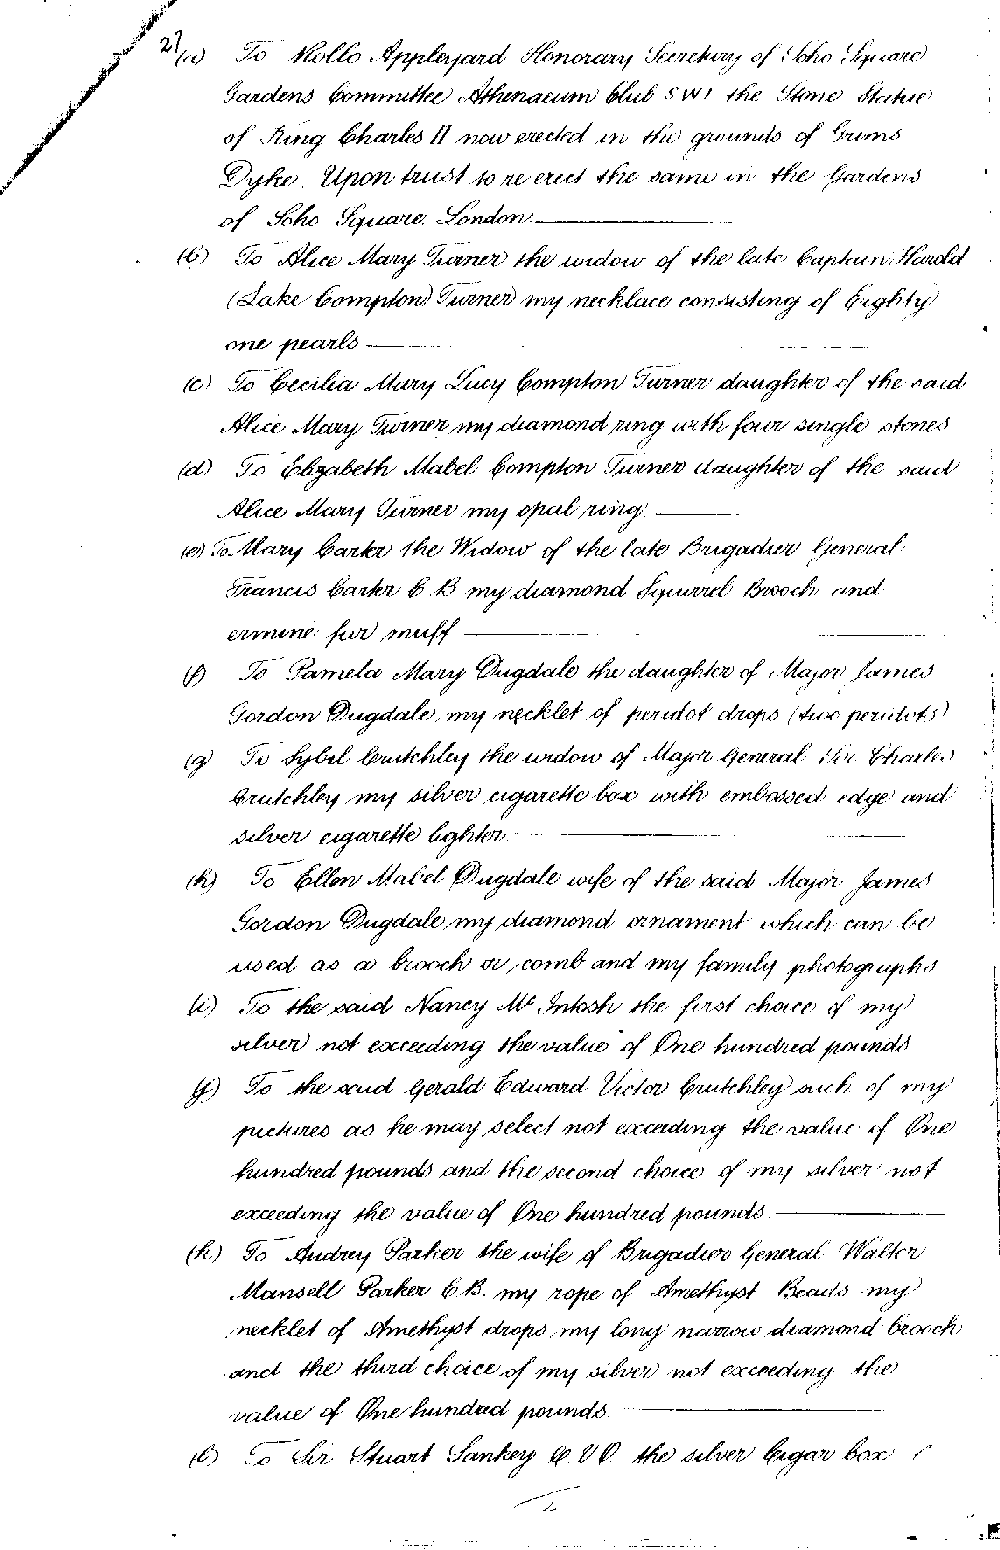 27 (a) To Rollo Appleyard Honorary Secretary of Soho Square
Gardens Committee Athenaeum Club SW1 the Stone Statue
of King Charles II now erected in the grounds of Grims
Dyke. Upon trust to re erect the same in the Gardens
of Soho Square London
(b) To Alice Mary Turner the widow of the late Captain Harold
(Lake Compton) Turner my necklace consisting of Eighty
one pearls
(c) To Cecilia Mary Lucy Compton Turner daughter of the said
Alice Mary Turner my diamond ring with four single stones
(d) To Elizabeth Mabel Compton Turner daughter of the said
Alice Mary Turner my opal ring
(e) To Mary Carter the Widow of the late Brigadier General
Francis Carter C B my diamond Squirrel Brooch and
ermine fur muff
(f) To Pamela Mary Dugdale the daughter of Major James
Gordon Dugdale my necklet of peridot drops (two peridots)
(g) To Sybil Crutchley the widow of Major General Sir Charles
Crutchley my silver cigarette box with embossed edge and
silver cigarette lighter
(h) To Ellen Mabel Dugdale wife of the said Major James
Gordon Dugdale my diamond ornament which can be
used as a brooch or comb and my family photographs
(i) To the said Nancy Mc Intosh the first choice of my
silver not exceeding the value of One hundred pounds
(j) To the said Gerald Edward Victor Crutchley such of my
pictures as he may select not exceeding the value of One
hundred pounds and the second choice of my silver not
exceeding the value of One hundred pounds
(k) To Audrey Parker the wife of Brigadier General Walter
Mansell Parker C.B. my rope of Amethyst Beads my
necklet of Amethyst drops my long narrow diamond brooch
and the third choice of my silver not exceeding the
value of One hundred pounds
(l) To Sir Stuart Sankey C.V.O. the silver Cigar box